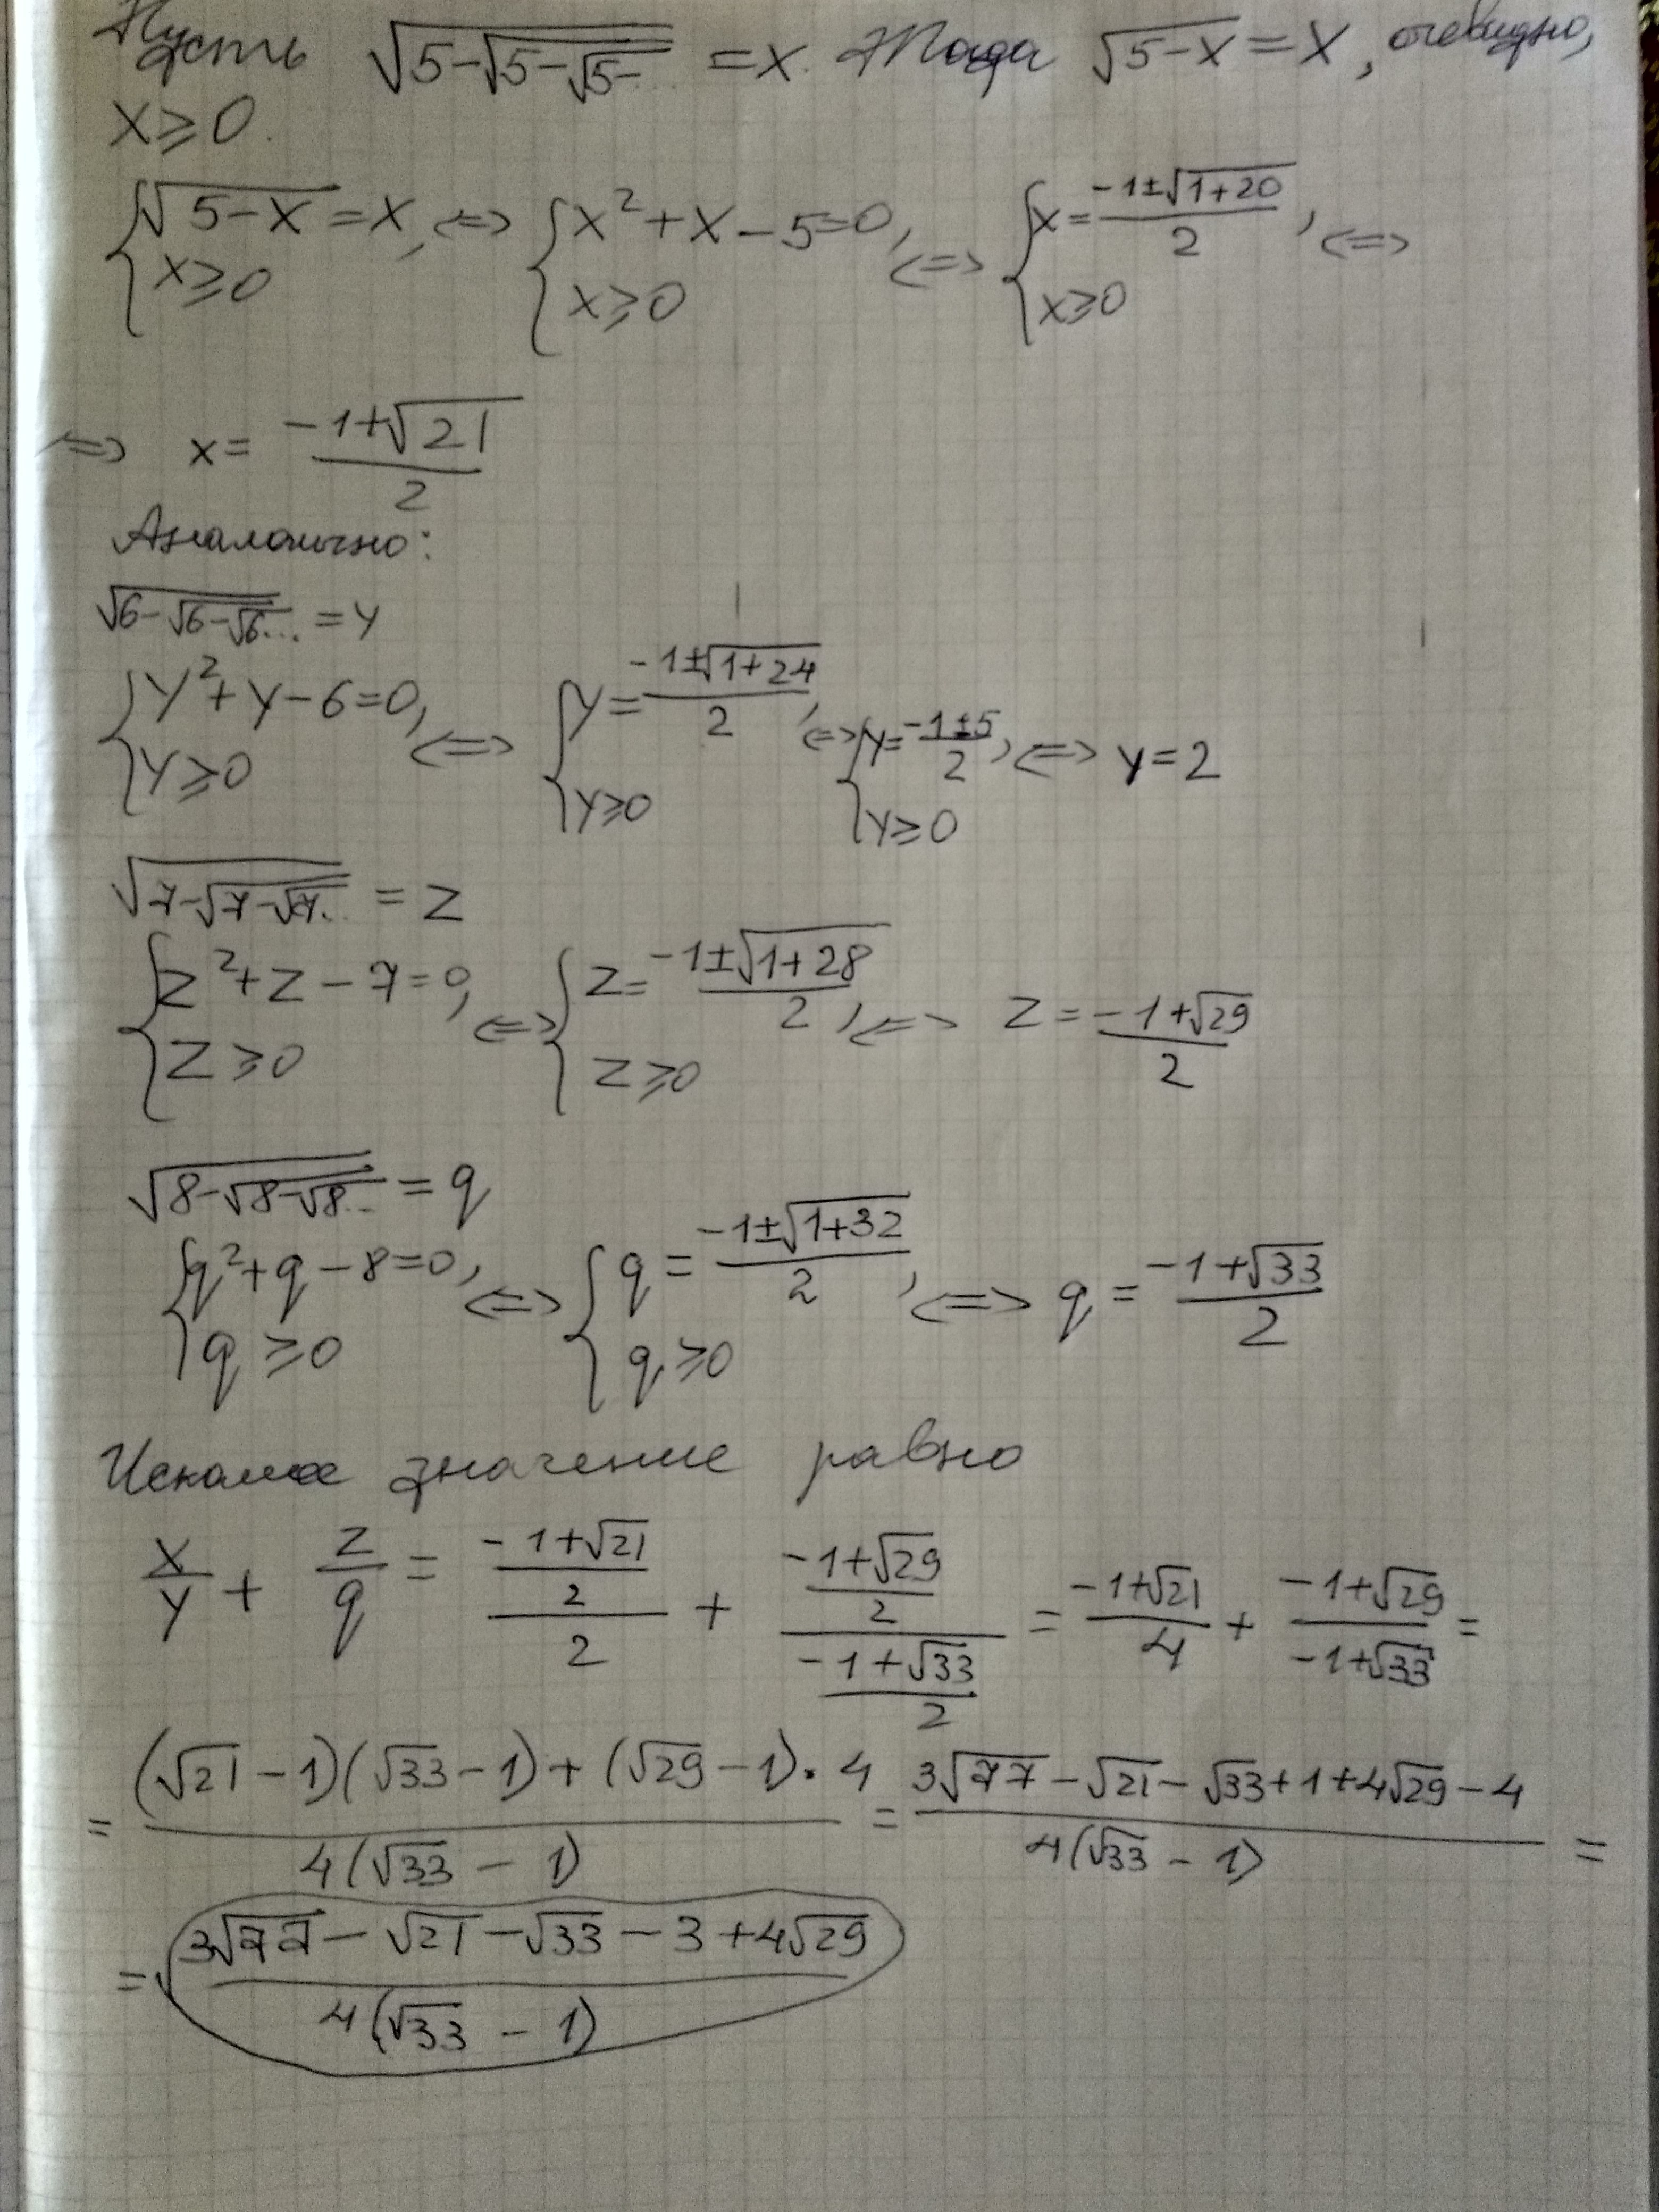 Пусть √(5-√(5-√(5-... = x. Тогда √(5-x) = x, очевидно,
x ≥ 0.
{ √(5-x) = x, <=> { x² + x - 5 = 0, <=> { x = (-1±√(1+20))/2, <=>
x ≥ 0 x ≥ 0 x ≥ 0
<=> x = (-1+√21)/2
Аналогично:
√(6-√(6-√(6... = y
{ y² + y - 6 = 0, <=> { y = (-1±√(1+24))/2, <=> { y = (-1±5)/2, <=> y = 2
y ≥ 0 y ≥ 0 y ≥ 0
√(7-√(7-√(7... = z
{ z² + z - 7 = 0, <=> { z = (-1±√(1+28))/2, <=> z = (-1+√29)/2
z ≥ 0 z ≥ 0
√(8-√(8-√(8... = q
{ q² + q - 8 = 0, <=> { q = (-1±√(1+32))/2, <=> q = (-1+√33)/2
q ≥ 0 q ≥ 0
Искомое значение равно
x/y + z/q = ((-1+√21)/2)/2 + ((-1+√29)/2)/((-1+√33)/2) = (-1+√21)/4 + (-1+√29)/(-1+√33) =
= ((√21 - 1)(√33 - 1) + (√29 - 1)·4)/(4(√33 - 1)) = (3√77 - √21 - √33 + 1 + 4√29 - 4)/(4(√33 - 1)) =
= (3√77 - √21 - √33 - 3 + 4√29)/(4(√33 - 1))